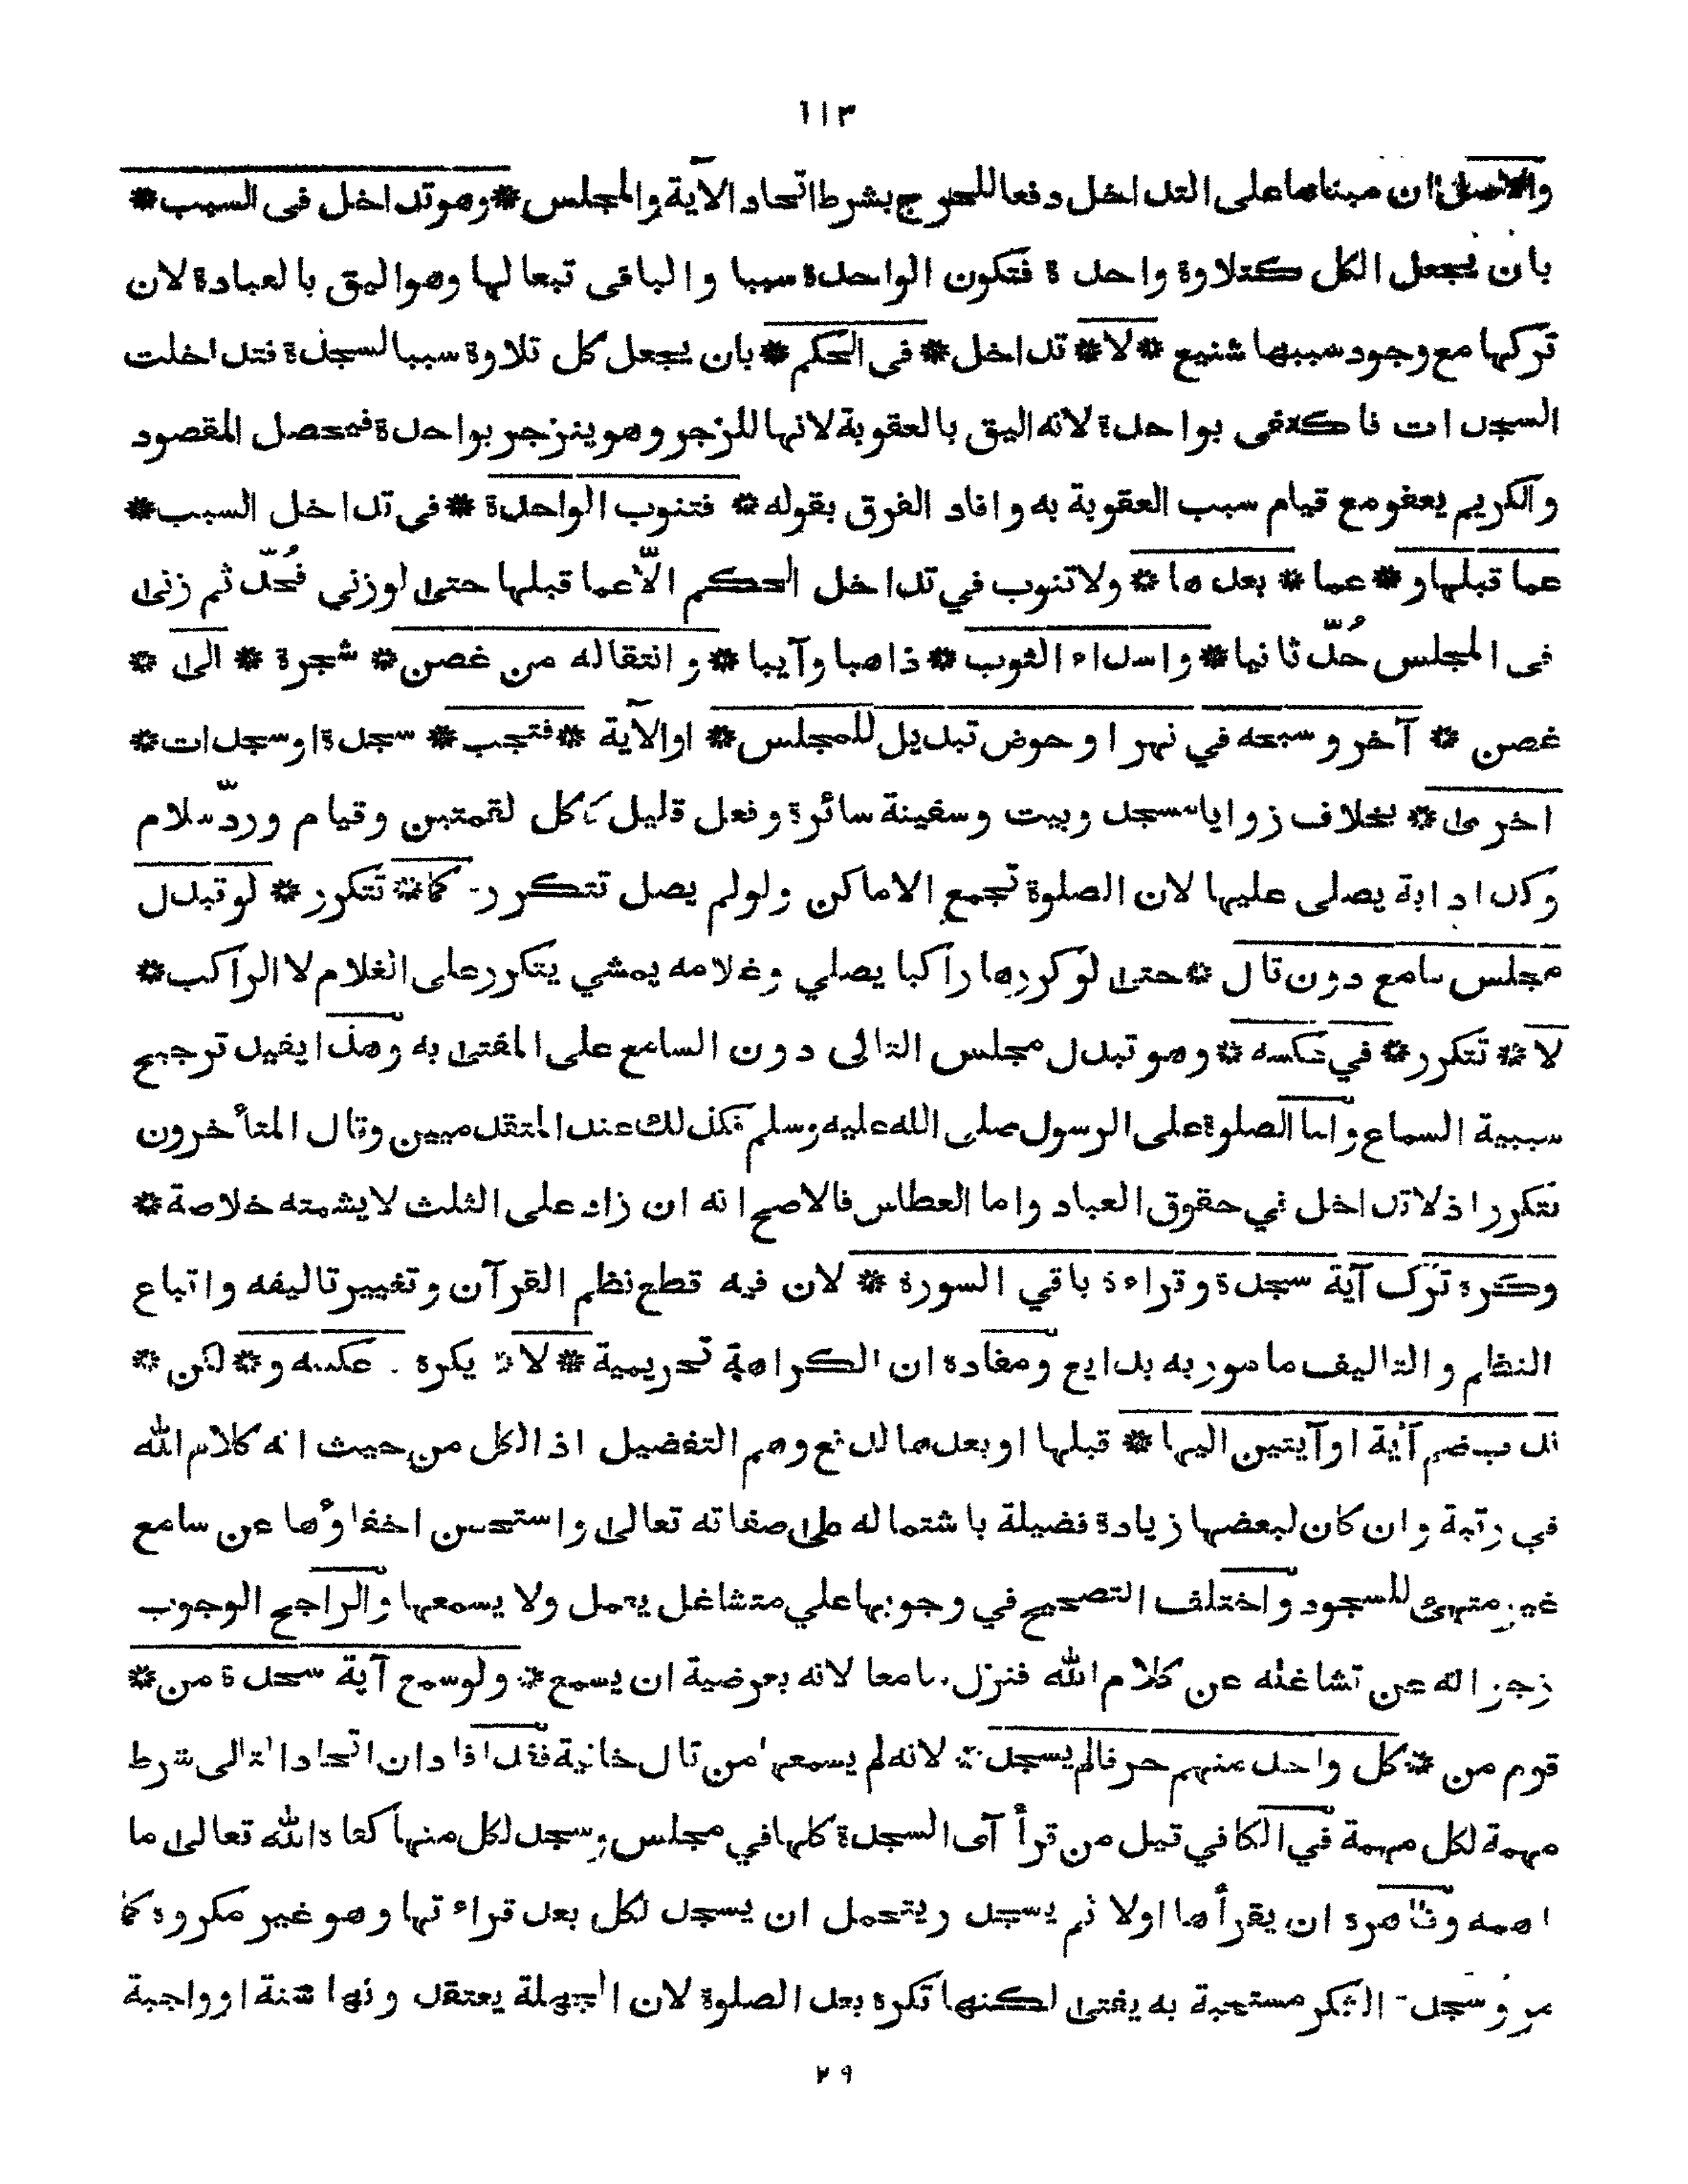 ١١٣
والاصل ان مبناها على التداخل دفعا للحرج بشرط اتحاد الآية والمجلس * وهو تداخل فى السبب *
بان يجعل الكل كتلاوة واحدة فتكون الواحدة سببا والباقى تبعا لها وهو اليق بالعبادة لان
تركها مع وجود سببها شنيع * لا * تداخل * فى الحكم * بان يجعل كل تلاوة سببا لسجدة فتداخلت
السجدات فاكتفى بواحدة لانه اليق بالعقوبة لانها للزجر وهو ينزجر بواحدة فيحصل المقصود
والكريم يعفو مع قيام سبب العقوبة به وافاد الفرق بقوله * فتنوب الواحدة * فى تداخل السبب *
عما قبلها و * عما * بعدها * ولا تنوب في تداخل الحكم الّا عما قبلها حتى لو زني فحُدّ ثم زنى
فى المجلس حُدّ ثانيا * واسداء الثوب * ذاهبا وآيبا * وانتقاله من غصن * شجرة * الى *
غصن * آخر وسبحه في نهر او حوض تبديل للمجلس * او الآية * فتجب * سجدة او سجدات *
اخرى * بخلاف زوايا مسجد وبيت وسفينة سائرة وفعل قليل كاكل لقمتين وقيام وردّ سلام
وكذا دابة يصلى عليها لان الصلوة تجمع الاماكن ولو لم يصل تتكرر كما * تتكرر * لو تبدل
مجلس سامع دون تال * حتى لو كررها راكبا يصلي وغلامه يمشي يتكرر على الغلام لا الراكب *
لا * تتكرر * في عكسه * وهو تبدل مجلس التالى دون السامع على المفتى به وهذا يفيد ترجيح
سببية السماع واما الصلوة على الرسول صلى الله عليه وسلم فكذلك عند المتقدميين وقال المتأخرون
تتكرر اذ لا تداخل في حقوق العباد واما العطاس فالاصح انه ان زاد على الثلث لا يشمته خلاصة *
وكره ترك آية سجدة وقراءة باقي السورة * لان فيه قطع نظم القرآن وتغيير تاليفه واتباع
النظم والتاليف مامور به بدايع ومفاده ان الكراهة تحريمية * لا * يكره عكسه و * لكن *
ندب ضم آية او آيتين اليها * قبلها او بعدها لدفع وهم التفضيل اذ الكل من حيث انه كلام الله
في رتبة وان كان لبعضها زيادة فضيلة باشتماله على صفاته تعالى واستحسن اخفاؤها عن سامع
غير متهيئ للسجود واختلف التصحيح في وجوبها علي متشاغل يعمل ولا يسمعها والراجح الوجوب
زجرا له عن تشاغله عن كلام الله فنزل سامعا لانه بعرضية ان يسمع * ولو سمع آية سجدة من *
قوم من * كل واحد منهم حرفا لم يسجد * لانه لم يسمعها من تال خانية فقد افاد ان اتحاد التالى شرط
مهمة لكل مهمة في الكافي قيل من قرأ آى السجدة كلها في مجلس وسجد لكل منها كفاه الله تعالى ما
اهمه وظاهره ان يقرأها اولا ثم يسجد ويتحمل ان يسجد لكل بعد قراءتها وهو غير مكروه كما
مر وسجدة الشكر مستحبة به يفتى لكنها تكره بعد الصلوة لان الجهلة يعتقدونها سنة او واجبة
٢٩